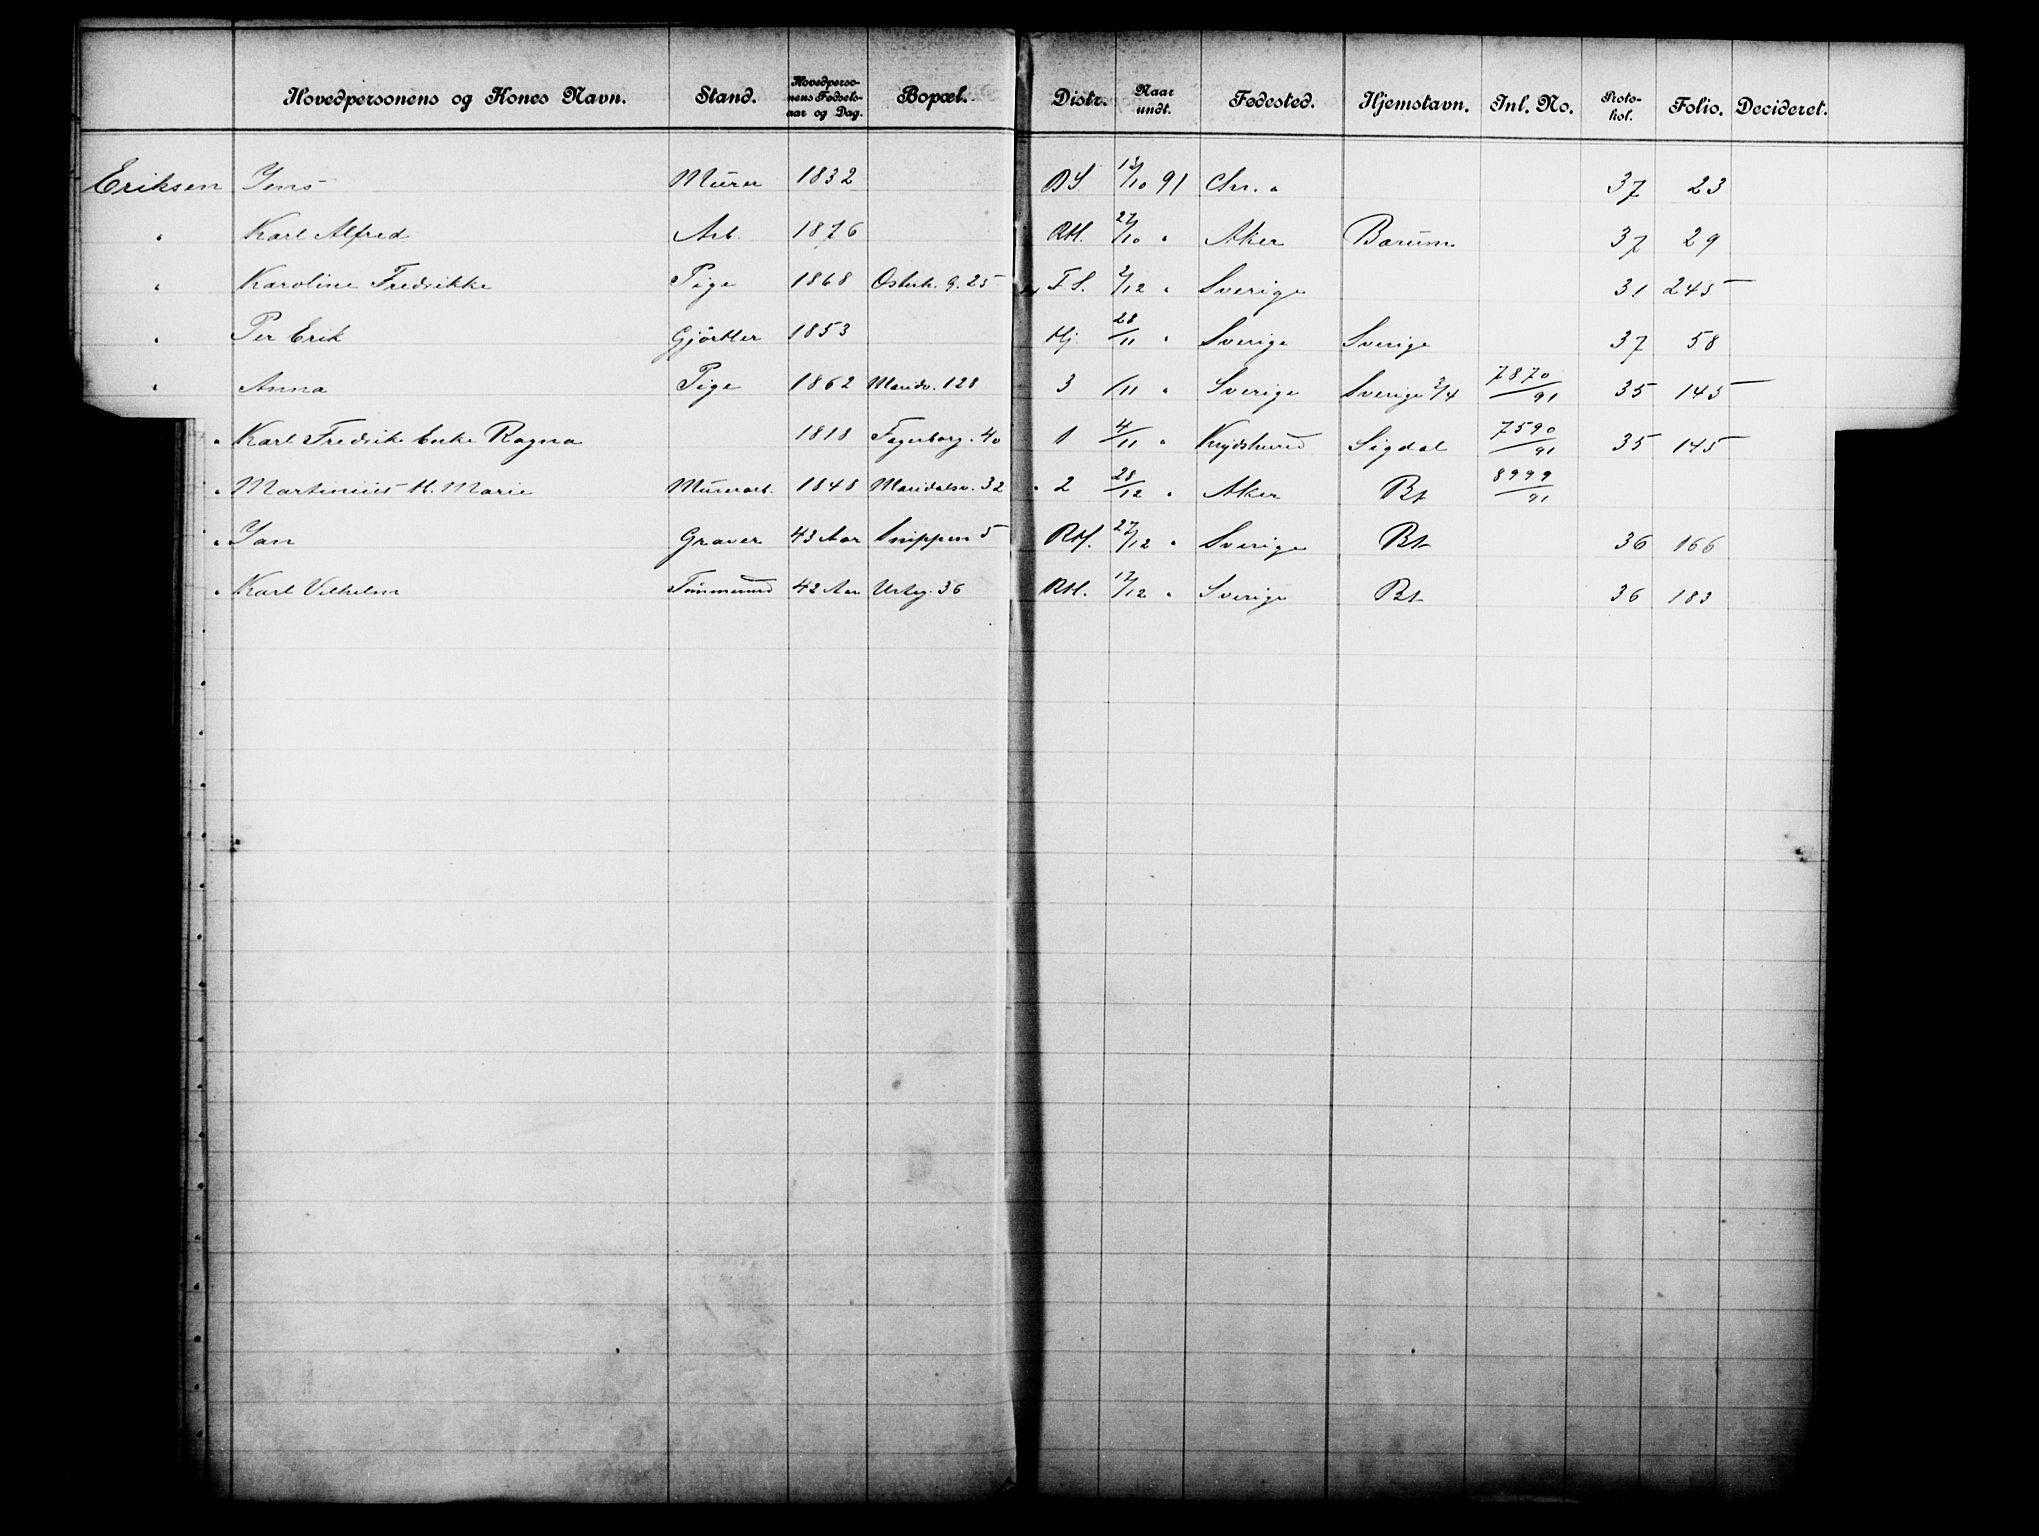 Hovedpersonens og Kones Navn. Stand. Hovedpersonens Fødselsaar og Dag. Bopæl. Distr. Naar undt. Fødested. Hjemstavn. Inl. No. Protokol. Folio. Decideret.
Eriksen Jens Murer 1832 BS 13/10 91 Chr. " 37 23
" Karl Alfred Arb. 1876 RH. 27/10 " Aker Bærum 37 29
" Karoline Fredrikke Pige 1868 Osterh. g. 25 FS. 2/12 " Sverige 31 245
" Per Erik Gjørtler 1853 Hj. 28/11 " Sverige Sverige 37 58
" Anna Pige 1862 Maridv. 128 3 /11 " Sverige Sverige 2/4 7870/91 35 145
" Karl Fredrik Enke Ragna 1818 Fagerborg. 40 1 4/11 " Krydsherred Sigdal 7590/91 35 145
" Martinius H. Marie Murerarb. 1848 Maridalsv. 32 2 28/12 " Aker Bt 8999/91
" Jan Graver 43 Aar Snippen 5 RH. 27/12 " Sverige Bt 36 166
" Karl Vilhelm Tømmermd 42 Aar Urteg. 36 RH. 17/12 " Sverige Bt 36 183